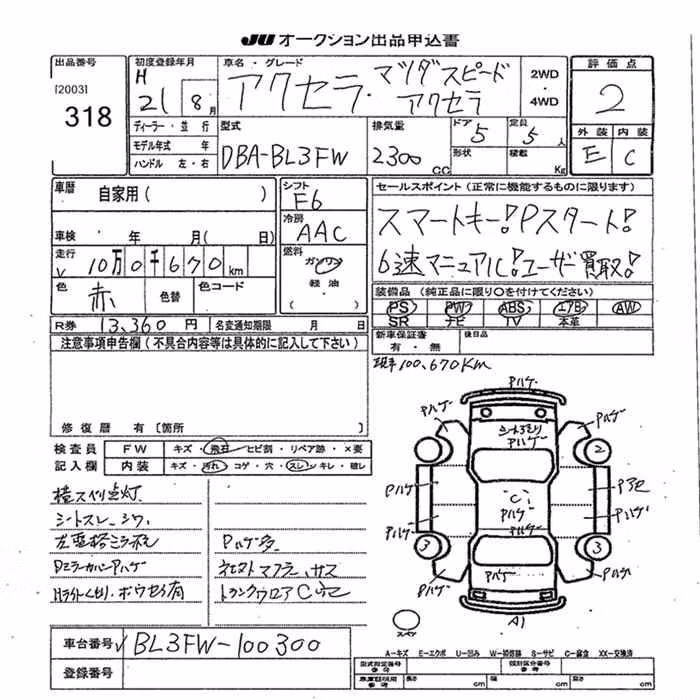 JU オークション出品申込書
出品番号
[2003]
318
初度登録年月
H
21 8月
車名・グレード
アクセラ・マツダスピード
アクセラ
2WD
・
4WD
評価点
2
外装 内装
E C
ディーラー・並行
モデル年式 年
ハンドル 左・右
型式
DBA-BL3FW
排気量
2300
CC
ドア
5
形状
定員
5人
積載
Kg
車歴 自家用( )
車検 年 月( 日)
走行
10万0千670 km
色
赤
色替
色コード
シフト
F6
冷房
AAC
燃料
ガソリン
軽油
セールスポイント(正常に機能するものに限ります)
スマートキー!Pスタート!
6速マニュアル!ユーザー買取!
装備品(純正品に限り○を付けてください)
PS PW ABS エアB AW
SR ナビ TV 本革
R券 13,360円
名変通知期限 月 日
新車保証書
有・無
後日品
注意事項申告欄(不具合内容等は具体的に記入して下さい)
100,670Km
修復歴 有[箇所
検査員
記入欄
FW キズ・飛石・ヒビ割・リペア跡・×要
内装 キズ・汚れ・コゲ・穴・スレ・キレ・破レ
横スベリ点灯
シートスレ シワ
PミラーカバーPハゲ
Pハゲ多
Pハゲ
Pハゲ
Pハゲ
Pハゲ
Pハゲ
Pハゲ
Pハゲ
Pハゲ
Pハゲ
Pハゲ
Pハゲ
2
3
3
C
A1
スペア
A-キズ E-エクボ U-凹み W-補修跡 S-サビ C-腐食 XX-交換済
車台番号 BL3FW-100300
登録番号
型式指定番号
参考
類別区分番号
参考
長さ cm
幅 cm
高さ cm